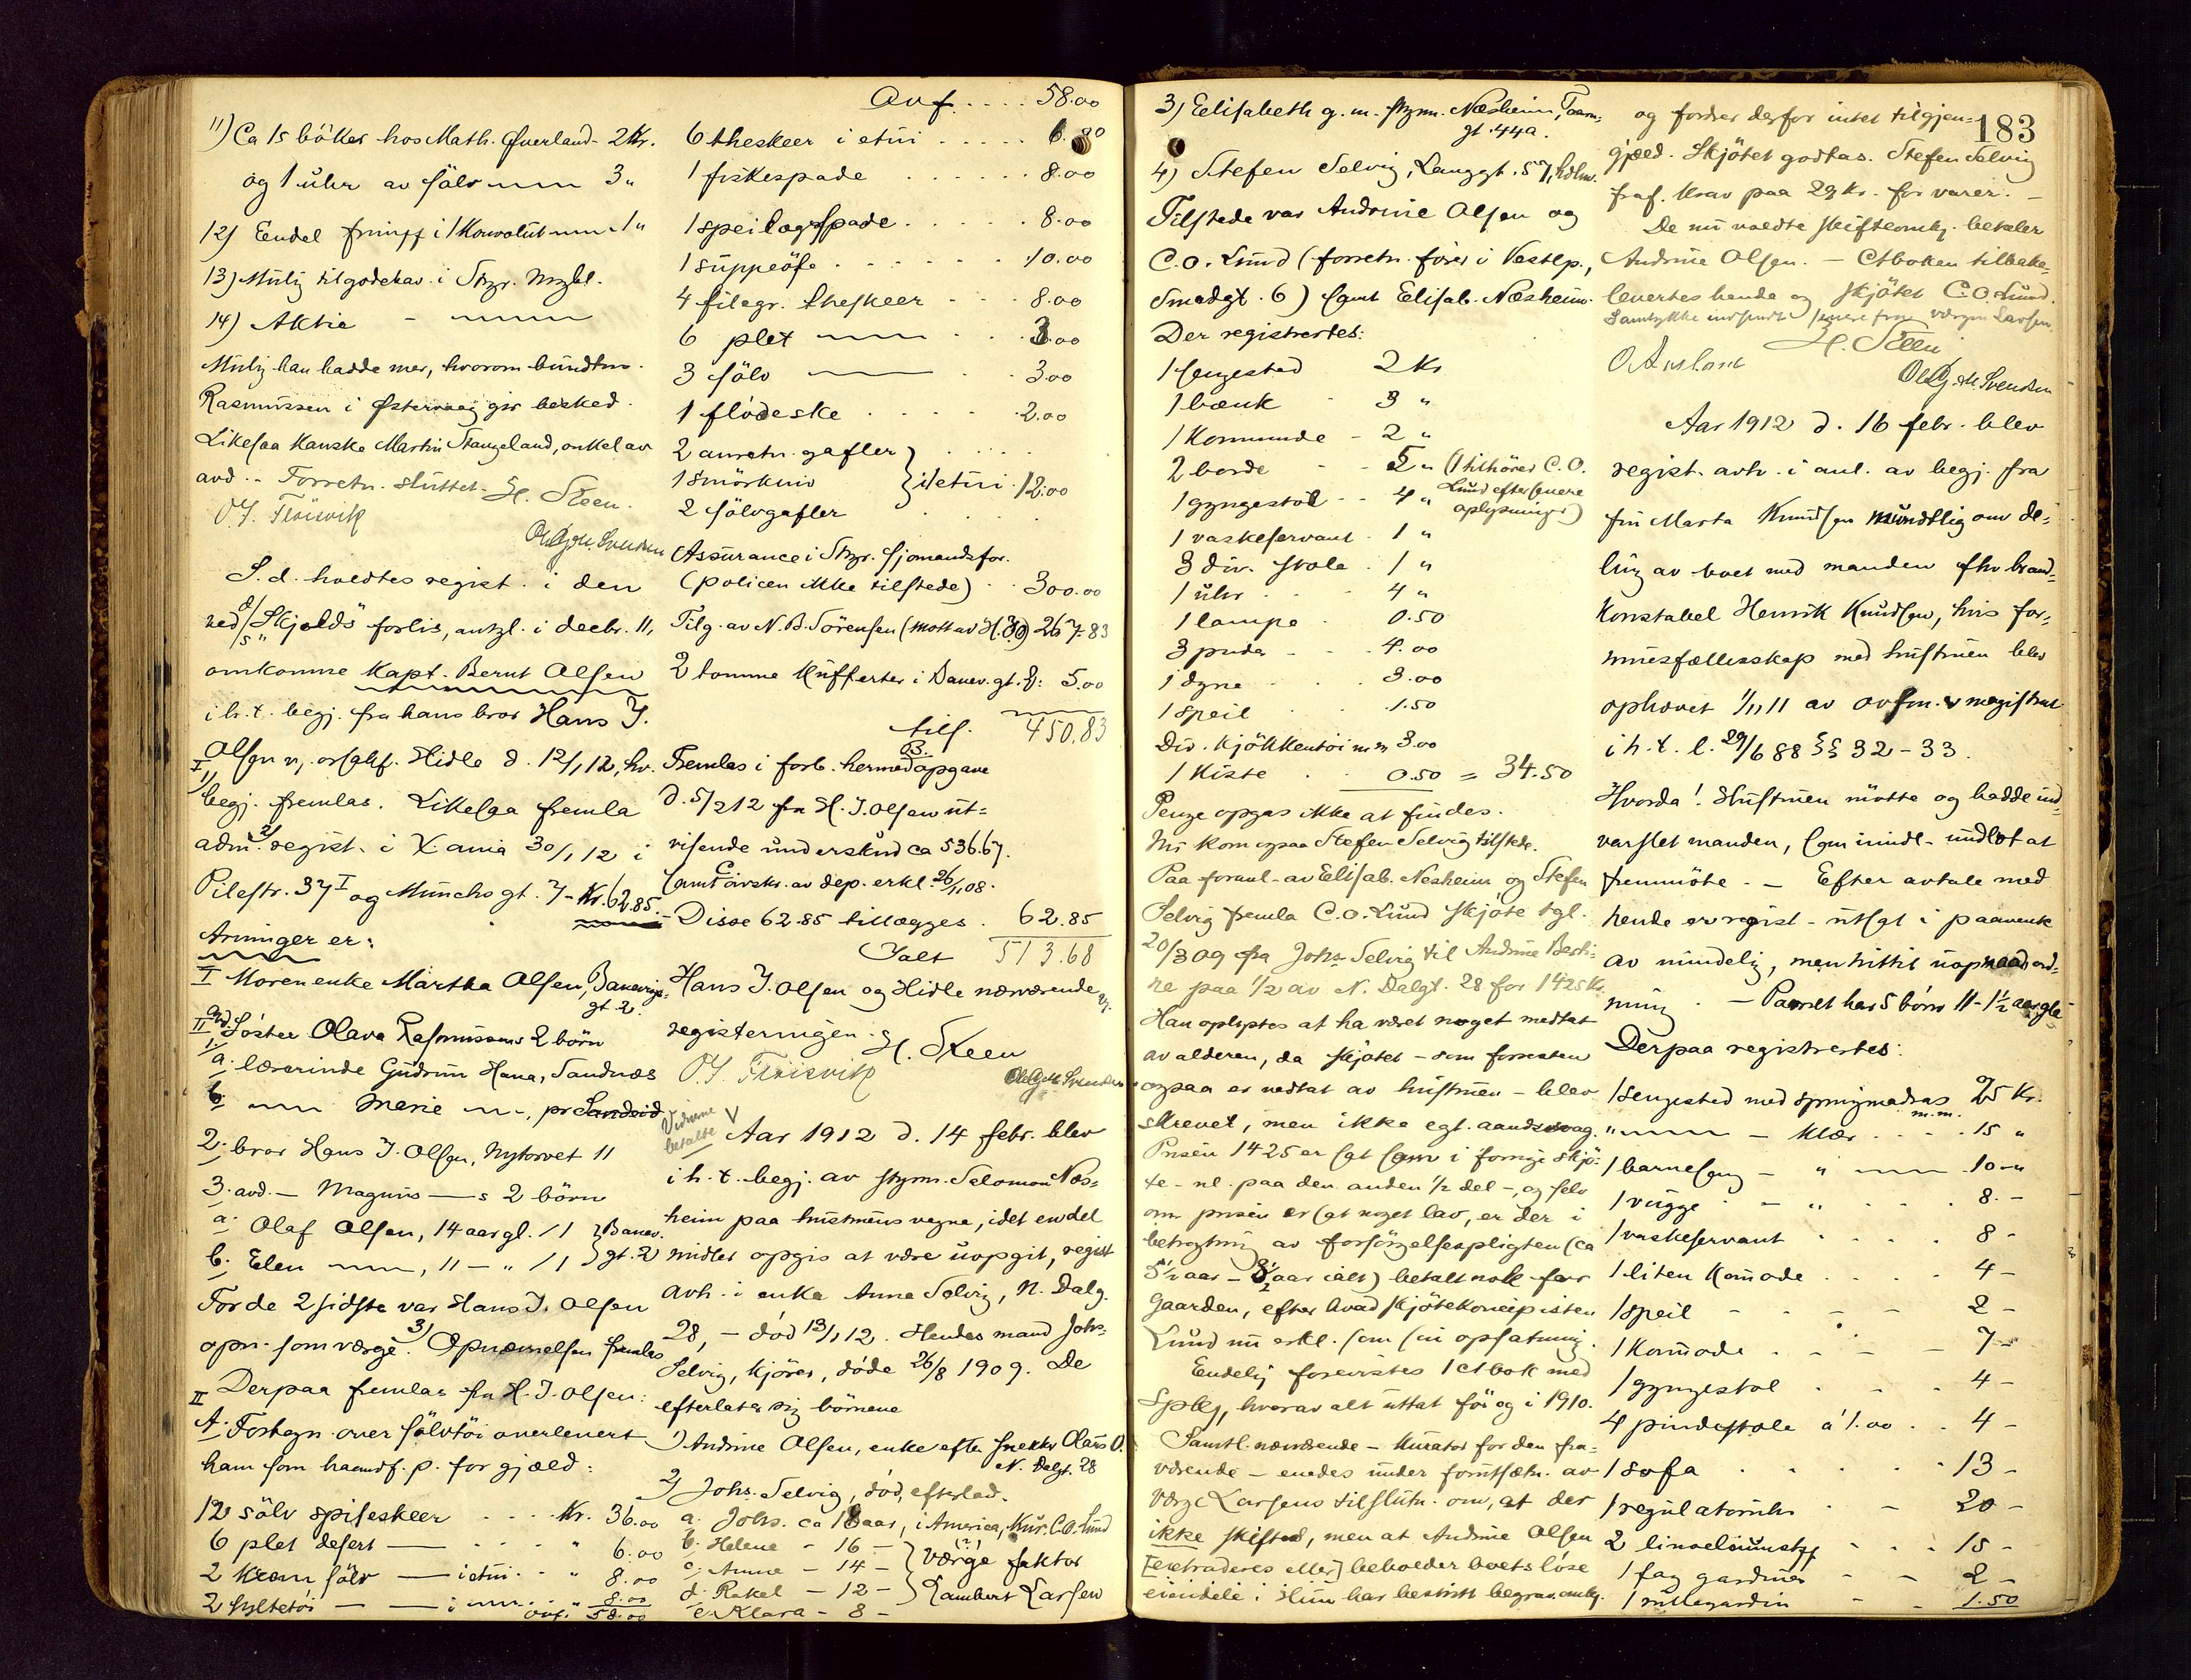 11) Ca 15 böker hos Math. Qverland - 2 Kr.
og 1 uhr av sölv 3 "
12) Endel i 1 Konvolut 1 "
13) Mulig tilgodehav. i Stvgr.
14) Aktie -
Mulig han hadde mer, hvorom bundtm.
Rasmussen i Østervaag gir besked.
Likesaa kanske Martin Stangeland, onkel av
avd. - Forretn. sluttet. H. Steen.
S. d. holdtes regist. i den
ved d/s "Skjold"s forlis, antgl. i decbr. 11,
omkomne Kapt. Bernt Olsen
i h. t. begj. fra hans bror Hans J.
Olsen Hidle d. 12/1 12, hv.
I 1) begj. fremlas. Likesaa fremla
adm. 2) regist. i Xania 30/1 12 i
Pilestr. 37 I og Munchs gt. 7 - Kr. 62.85.
Arvinger er:
I Moren enke Martha Olsen, Banevigs-
gt. 2.
II avd. Söster Olava Rasmussens 2 börn
1/ a. lærerinde Gudrun Hana, Sandnæs
b. Marie pr Sandeid
2. bror Hans J. Olsen, Nytorvet 11
3. avd. - Magnus - s 2 börn
a. Olaf Olsen, 14 aar gl. /1 } Banev.
b. Elen , 11 - " /1 } gt. 2
For de 2 sidste var Hans J. Olsen
opn. som værge. 3) Opnævnelsen fremlas
II Derpaa fremlas fra H. J. Olsen:
A. Fortegn. over sölvtöi overlevert
ham som haandf. p. for gjæld:
12 sölv spiseskeer . . . Kr. 36.00
6 plet desert — . . . " 6.00
2 Krom sölv — i etui . . " 8.00
2 syltetöi — — i " 8.00
Ovf. " 58.00
Ovf. . . . 58.00
6 theskeer i etui . . . . . 6.00
1 fiskespade . . . . . . 8.00
1 speilægspade . . . . . 8.00
1 suppeöse . . . . . . 10.00
4 filegr. theskeer . . . 8.00
6 plet . . 3.00
3 sölv — . . 3.00
1 flödeske . . . . . 2.00
2 anretn. gafler }
1 smörkniv } i 1 etui . 12.00
2 sölvgafler
Assurance i Stvgr. Sjomandsfor.
(policen ikke tilstede) . . 300.00
Tilg. av N. B. Sörensen (mott av H. J. O) 267.83
2 tomme Kufferter i Banev. gt. 2: 5.00
tils. 450.83
B.
Fremlas i forb. hermed opgave
d. 5/2 12 fra H. J. Olsen ut-
visende underskud ca 536.67.
C
samt av dep. erkl. 26/1 08.
Disse 62.85 tillægges . 62.85
Ialt 513.68
Hans J. Olsen og Hidle nærværende v.
registeringen. H. Steen
Vidnerne
betalte V
Aar 1912 d. 14 febr. blev
i h. t. begj. av styrm. Salomon Næs-
heim paa hustruens vegne, idet endel
midler opgis at være uopgit, regist
avh. i enke Anna Selvig, N. Dalg.
28, - död 13/1 12. Hendes mand Johs.
Selvig, kjörer, döde 26/8 1909. De
efterlater sig börnene
1) Andrine Olsen, enke efter snekker Olaus O.
N. Dalgt. 28
2) Johs. Selvig, död, efterlad.
a. Johs. ca 18 aar, i America, Kur. C. O. Lund
b. Helene - 16 - (?)
c. Anna - 14 - } værge faktor
d. Rakel - 12 - } Lambert Larsen
e. Klara - 8 -
183
3) Eelisabeth g. m. styrm. Næsheim,
gt. 44a.
4) Stefen Selvig, Langgt. 57,
Tilstede var Andrine Olsen og
C. O. Lund (forretn. förer i Vestlp.,
Smedgt. 6) samt Elisab. Næsheim.
Der registrertes:
1 sengested 2 Kr
1 bænk - 3 "
1 Kommode - 2 "
2 borde - - 5 " (1 tilhörer C. O.
1 gyngestol - - 4 " Lund efter senere
oplysninger)
1 vaskeservant . 1 "
3 div. stole . 1 "
1 uhr . . . 4 "
1 lampe . 0.50
3 puder - - . 4.00
1 dyne . . 3.00
1 speil . . 1.50
Div. kjökkentöi m m 3.00
1 Kiste . . 0.50 = 34.50
Penge opgas ikke at findes.
Nu kom ogsaa Stefen Selvig tilstede.
Paa foranl. av Elisab. Nesheim og Stefen
Selvig fremla C. O. Lund skjöte tgl.
20/3 09 fra Johs Selvig til Andrine Berti-
ne paa 1/2 av N. Dalgt. 28 for 1425 Kr.
Han oplystes at ha været noget medtat
av alderen, da skjötet - som forresten
ogsaa er vedtat av hustruen - blev
skrevet, men ikke egt. aandssvag.
Prisen 1425 er sat som i forrige skjö-
te - nl. paa den anden 1/2 del -, og selv
om prisen er sat noget lav, er der i
betragtning av forsörgelsespligten (ca
5 1/2 aar - 3 1/2 aar ialt) betalt nok for
gaarden, efter hvad skjötekoncipisten
Lund nu erkl. som sin opfatning.
Endelig forevistes 1 ctbok med
Spbk, hvorav alt uttat för og i 1910.
Samtl. nærværende - Kurator for den fra-
værende - enedes under forutsætn. av
værge Larsens tilslutn. om, at der
ikke skiftes, men at Andrine Olsen
[extraderes eller] beholder boets löse
eiendele i Hun har bestridt begrav. omkg.
og fordrer derfor intet tilgjen-
gjæld. Skjötet godtas. Stefen Selvig
fraf. krav paa 29 kr. for varer. -
De nu voldte skifteomkg. betaler
Andrine Olsen. - Ctboken tilbake-
levertes hende og skjötet C. O. Lund.
Samtykke indhendt senere fra værgen Larsen.
H. Steen
Aar 1912 d. 16 febr. blev
regist. avh. i anl. av begj. fra
fru Marta Knudsen mundtlig om de-
ling av boet med manden fhv brand-
konstabel Henrik Knudsen, hvis for-
muesfællesskap med hustruen blev
ophævet 1/11 11 av magistrat
i h. t. l. 29/6 88 §§ 32 - 33.
Hvorda! Hustruen mötte og hadde ind-
varslet manden, som imidl. undlot at
fremmöte. - Efter avtale med
hende er regist. utsat i paavente
av mindelig, men hittil uopnaad ord-
ning. - Parret har 5 börn 11 - 1 1/2 aar gle
Derpaa registrertes:
1 sengested med springmadras 25 Kr.
m. m.
" - klær . . . . 15 "
1 barneseng - " 10 - "
1 vugge - " . . . 8. -
1 vaskeservant . . . . 8 -
1 liten Komode . . . . 4 -
1 speil - - - - 2 -
1 Komode . . - - 7 -
1 gyngestol . . . 4 -
4 pindestole á 1.00 . . 4 -
1 sofa . . . . . 13 -
1 regulatoruhr . - 20 -
2 linoleumstpp - . . 15 -
1 fag gardiner - - 2 -
1 rullegardin - - 1.50